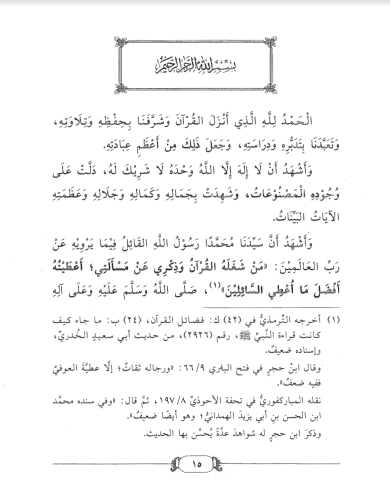 بسم الله الرحمن الرحيم
الْحَمْدُ لِلَّهِ الَّذِي أَنْزَلَ الْقُرْآنَ وَشَرَّفَنَا بِحِفْظِهِ وَتِلَاوَتِهِ،
وَتَعَبَّدَنَا بِتَدَبُّرِهِ وَدِرَاسَتِهِ، وَجَعَلَ ذَلِكَ مِنْ أَعْظَمِ عِبَادَتِهِ.
وَأَشْهَدُ أَنْ لَا إِلَهَ إِلَّا اللَّهُ وَحْدَهُ لَا شَرِيكَ لَهُ، دَلَّتْ عَلَى
وُجُودِهِ الْمَصْنُوعَاتُ، وَشَهِدَتْ بِجَمَالِهِ وَكَمَالِهِ وَجَلَالِهِ وَعَظَمَتِهِ
الْآيَاتُ الْبَيِّنَاتُ.
وَأَشْهَدُ أَنَّ سَيِّدَنَا مُحَمَّدًا رَسُولُ اللَّهِ الْقَائِلُ فِيمَا يَرْوِيهِ عَنْ
رَبِّ الْعَالَمِينَ: «مَنْ شَغَلَهُ الْقُرْآنُ وَذِكْرِي عَنْ مَسْأَلَتِي؛ أَعْطَيْتُهُ
أَفْضَلَ مَا أُعْطِي السَّائِلِينَ»(١)، صَلَّى اللَّهُ وَسَلَّمَ عَلَيْهِ وَعَلَى آلِهِ
(١) أخرجه الترمذيُّ في (٤٢) ك: فضائل القرآن، (٢٤) ب: ما جاء كيف
كانت قراءة النَّبيِّ ﷺ، رقم (٢٩٢٦)، من حديث أبي سعيدٍ الخُدريِّ،
وإسناده ضعيفٌ.
وقال ابنُ حجرٍ في فتح الباري ٦٦/٩: «ورجاله ثقاتٌ؛ إلَّا عطيَّةَ العوفيَّ
ففيه ضعفٌ».
نقله المباركفوريُّ في تحفة الأحوذيِّ ١٩٧/٨، ثمَّ قال: «وفي سنده محمَّد
ابن الحسن بن أبي يزيدَ الهمدانيُّ؛ وهو أيضًا ضعيفٌ».
وذكرَ ابن حجرٍ له شواهدَ عدَّةً يُحسَّن بها الحديث.
١٥